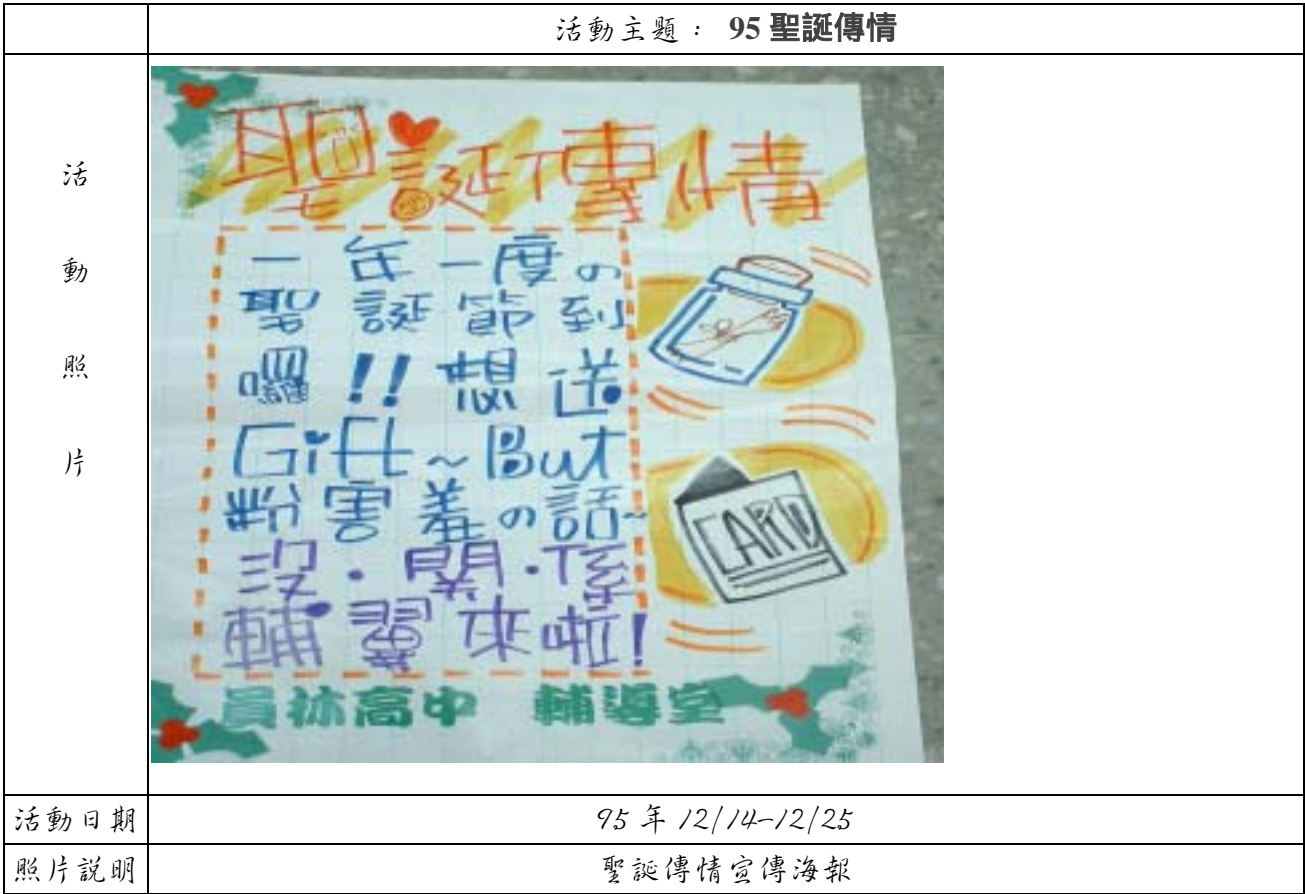 活動主題： 95 聖誕傳情
活動照片
聖誕傳情
一年一度の
聖誕節到
囉!!想送
Gift~But
粉害羞の話~
沒·關·係
輔翼來啦!
CARD
員林高中 輔導室
活動日期 95年12/14-12/25
照片說明 聖誕傳情宣傳海報